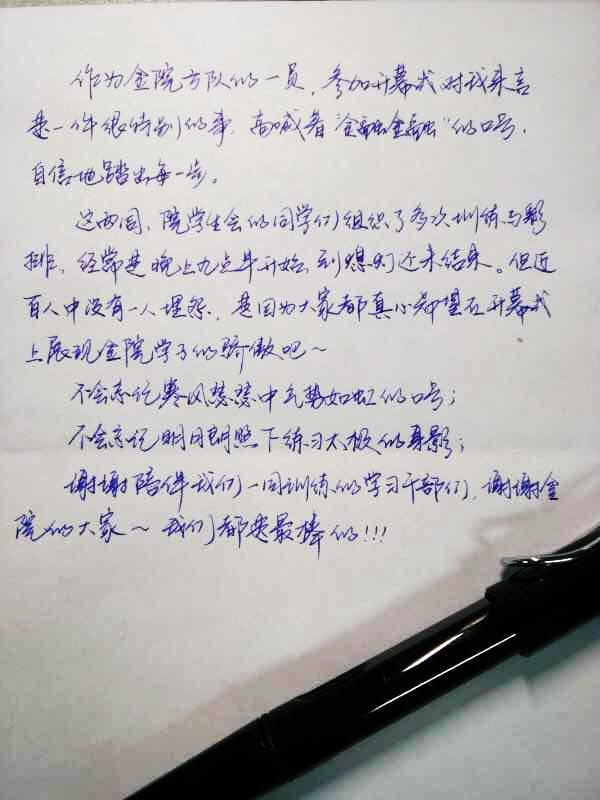 作为金院方队的一员，参加开幕式对我来言
是一件很特别的事，高喊着“金融金融”的口号，
自信地踏出每一步。
这两周，院学生会的同学们组织了多次训练与彩
排，经常是晚上九点半开始，到熄灯还未结束。但近
百人中没有一人埋怨，是因为大家都真心希望在开幕式
上展现金院学子的骄傲吧～
不会忘记寒风瑟瑟中气势如虹的口号；
不会忘记明月朗照下练习太极的身影；
谢谢陪伴我们一同训练的学习干部们，谢谢金
院的大家～我们都是最棒的!!!